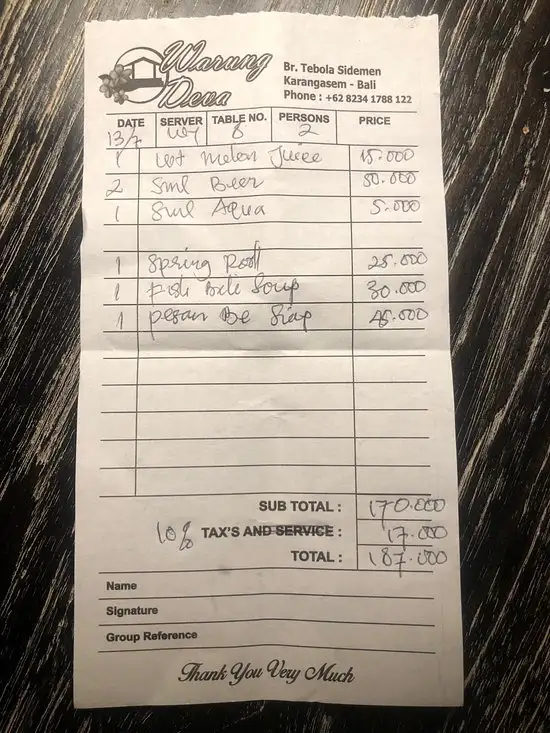 Warung
Deva
Br. Tebola Sidemen
Karangasem - Bali
Phone : +62 8234 1788 122
DATE SERVER TABLE NO. PERSONS PRICE
13/7 8 2
1 wt melon Juice 15.000
2 Sml Beer 50.000
1 Sml Aqua 5.000
1 Spring Roll 25.000
1 Fish Soup 30.000
1 pesan Be Siap 45.000
SUB TOTAL : 170.000
10% TAX'S AND SERVICE : 17.000
TOTAL : 187.000
Name
Signature
Group Reference
Thank You Very Much